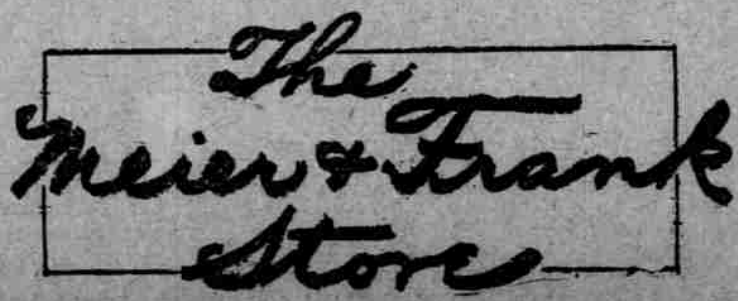 The
Meier & Frank
Store